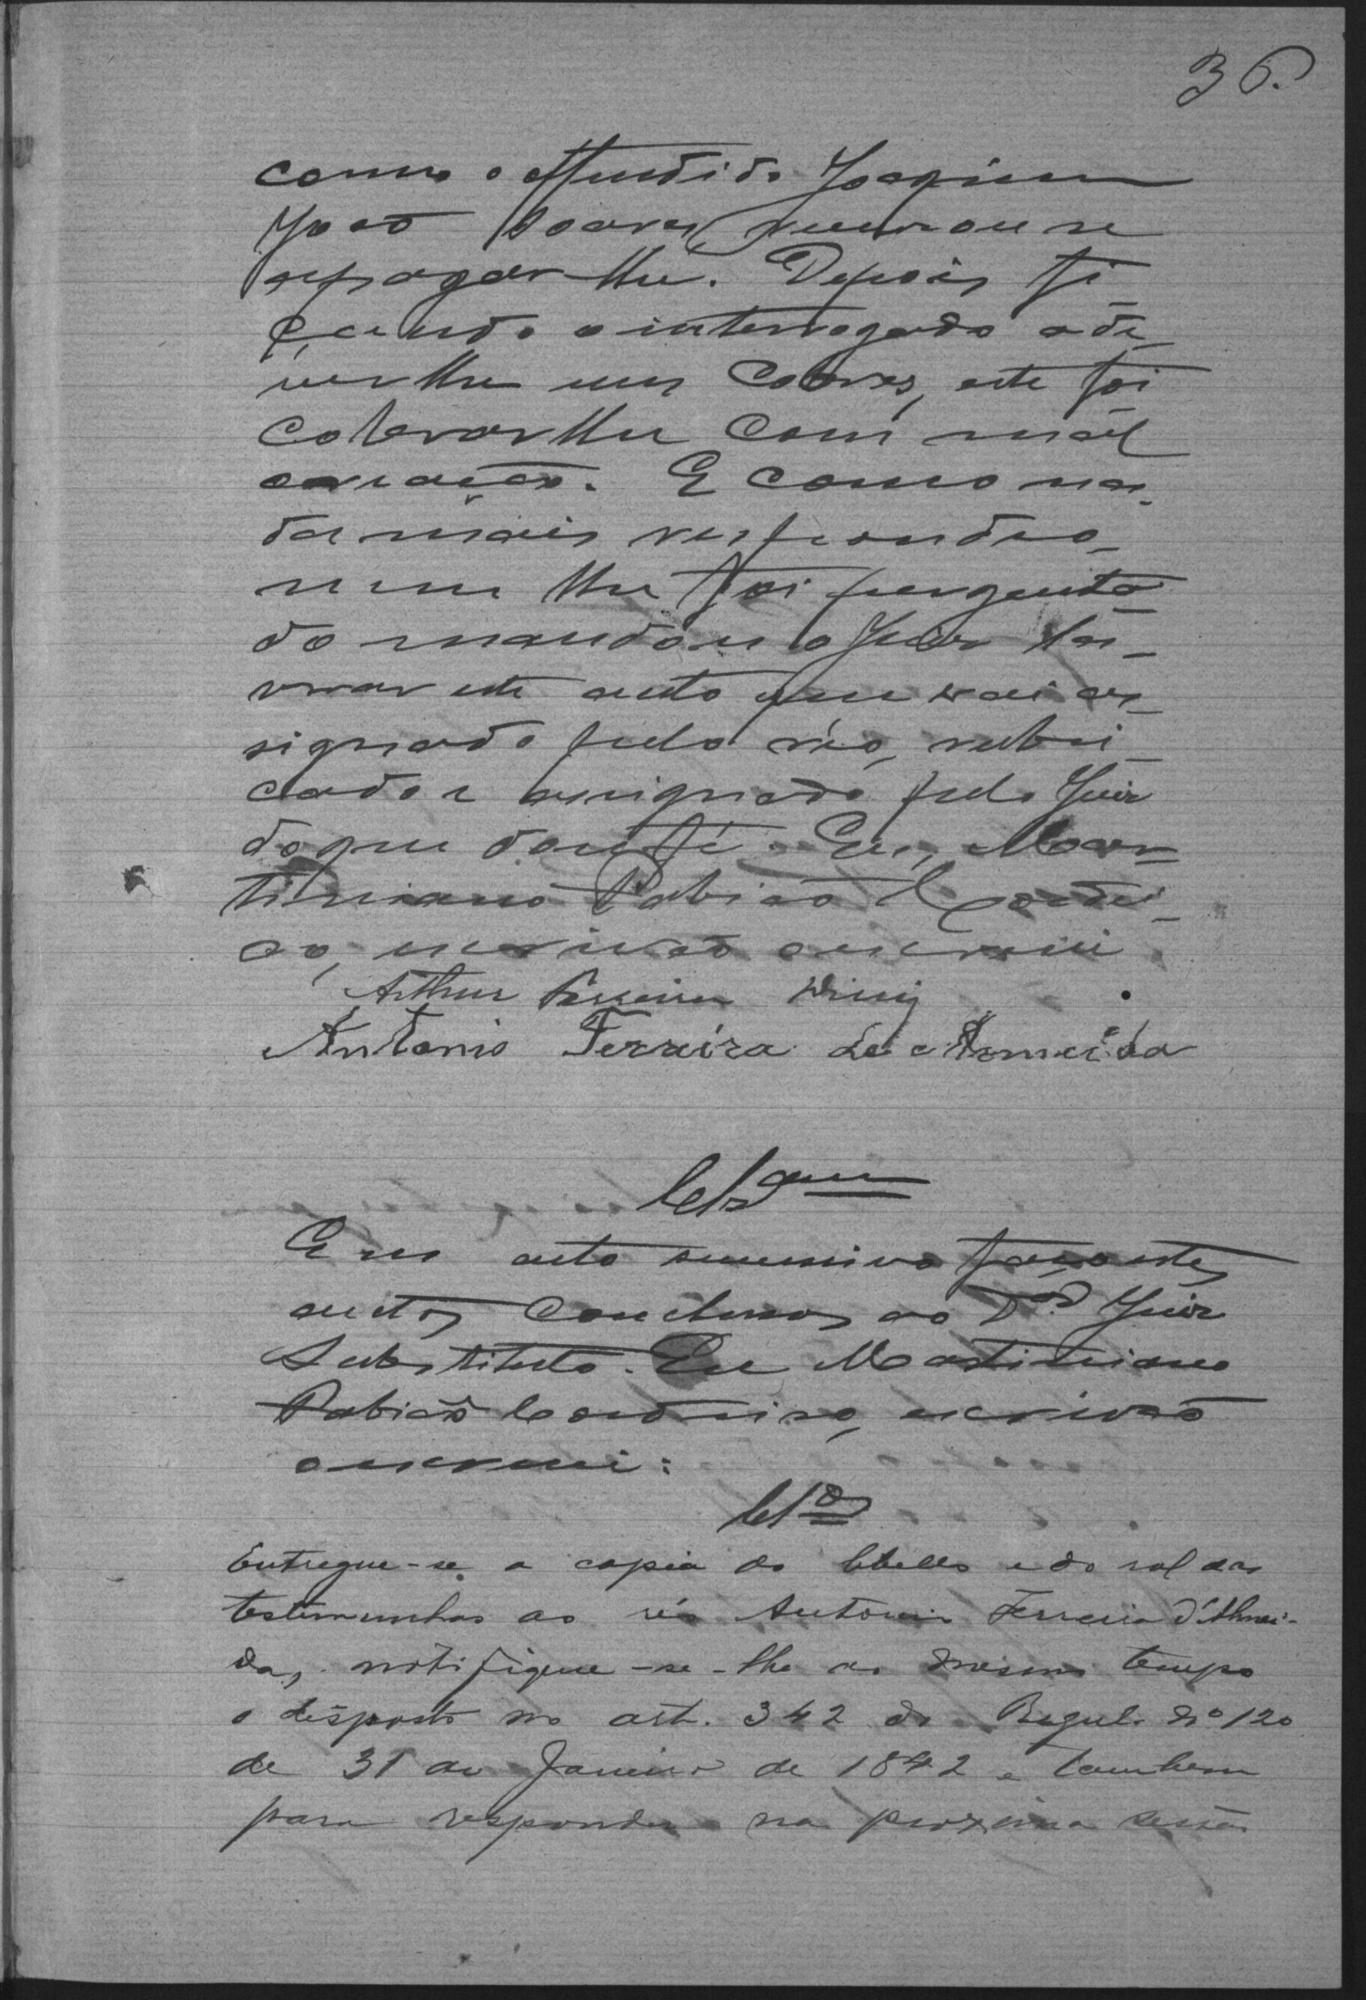 36.
como o offendido Joaquim
José Soares recusou se
a pagar-lhe. Depois fi
cando o interrogado a de-
ver lhe uns cobres, este foi
cobrar lhe com mál
creação. E como na-
da mais respondeo,
nem lhe foi pergunta
do mandou o Juiz la-
vrar este auto que vai as-
signado pelo réo, rubri
cado e assignado pelo Juiz
do que dou fé. Eu, Mar-
tiniano Fabião Cordei-
ro, escrivão o escrevi.
Arthur Ferreira
Antonio Ferreira de Almeida
Clsam
E no acto successivo faço estes
autos conclusos ao Dor. Juiz
Substituto. Eu Martiniano
Fabião Cordeiro, escrivão
o escrevi:
Clos
Entregue-se a copia do libello e do rol das
testemunhas ao réo Antonio Ferreira d'Almei-
da, notifique-se-lhe ao mesmo tempo
o disposto no art. 342 do Regul. nº 120
de 31 de Janeiro de 1842 e tambem
para responder na proxima sessão